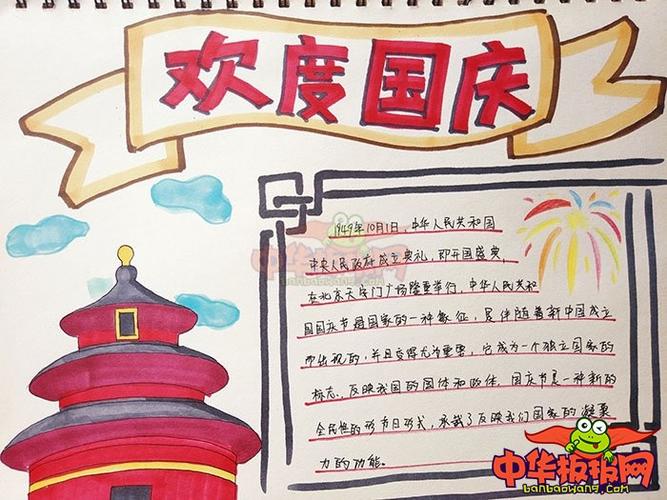 欢度国庆
1949年10月1日，中华人民共和国
中央人民政府成立典礼，即开国盛典
在北京天安门广场隆重举行，中华人民共和
国国庆节是国家的一种象征，是伴随着新中国成立
而出现的，并且变得尤为重要，它成为一个独立国家的
标志，反映我国的国体和政体。国庆节是一种新的
全民性的形节日形式，承载了反映我们国家的凝聚
力的功能。
中华板报网
banbaowang.com
中华板报网
banbaowang.com